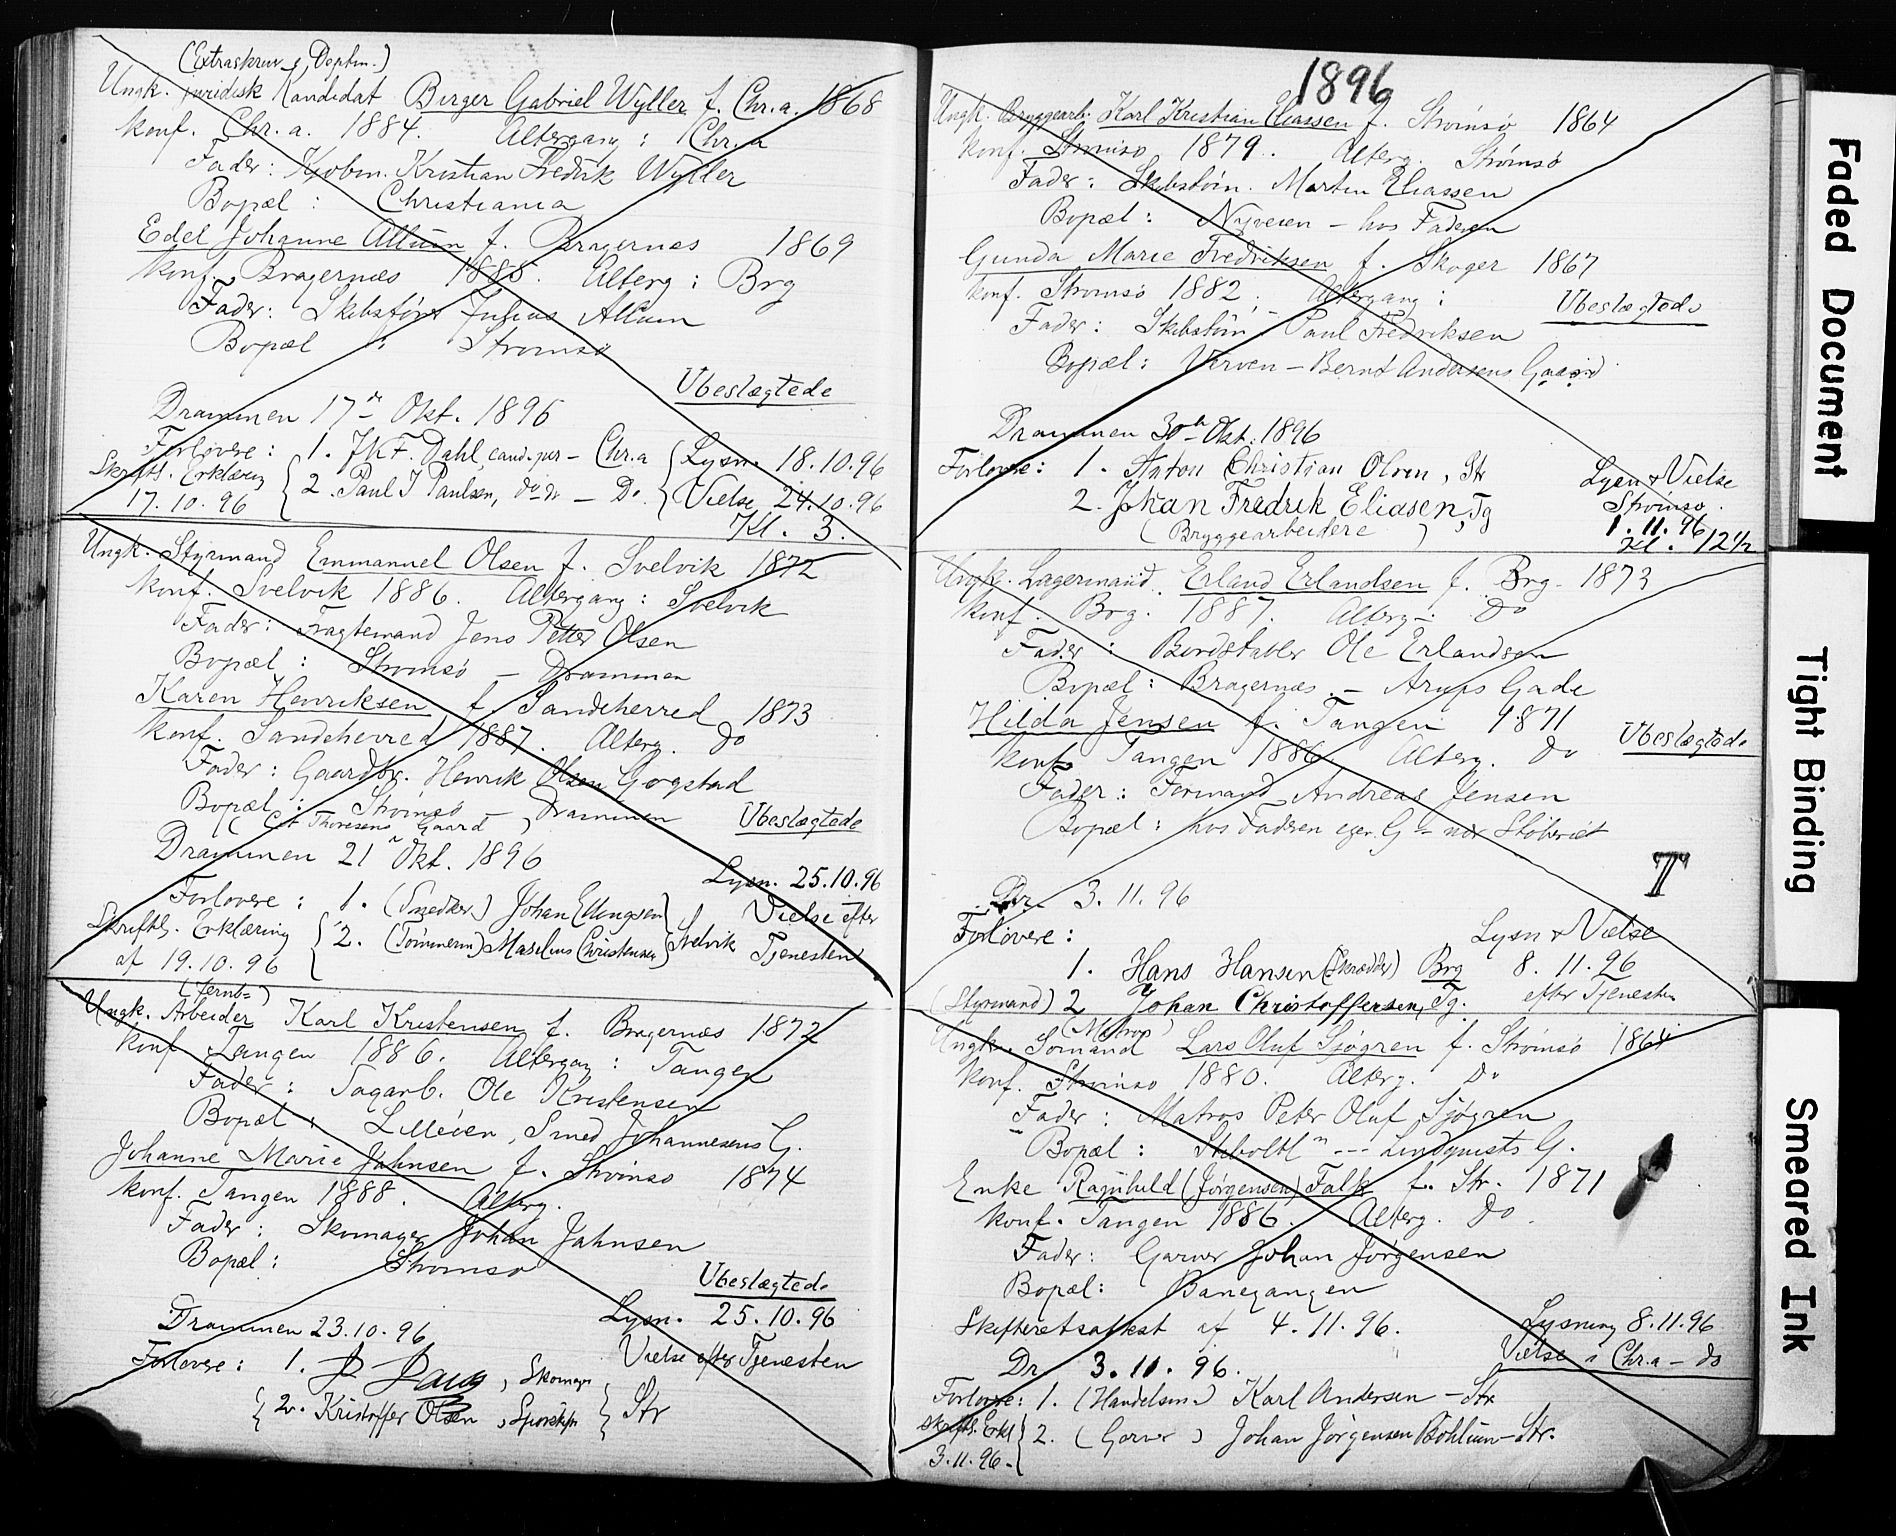 (Extraskriv. i Deptm.)
Ungk. juridisk Kandidat Birger Gabriel Wyller f. Chr.a. 1868
konf. Chr.a. 1884. Altergang: Chr.a
Fader: Kjøbm. Kristian Fredrik Wyller
Bopæl: Christiania
Edel Johanne Allum f. Bragernæs 1869
konf. Bragernæs 1885. Alterg: Brg
Fader: Skibsfører Julius Allum
Bopæl: Strømsø
Ubeslægtede
Drammen 17 Okt. 1896
Forlovere: 1. Dahl, cand. jur – Chr.a Lysn. 18.10.96
Skriftl. Erklæring 17.10.96 2. Paul J Paulsen, do do – Do. Vielse 24.10.96
Kl. 3.
Ungk. Styrmand Emmanuel Olsen f. Svelvik 1872
konf. Svelvik 1886. Altergang: Svelvik
Fader: Fragtemand Jens Petter Olsen
Bopæl: Strømsø – Drammen
Karen Henriksen f. Sandeherred 1873
konf. Sandeherred 1887. Alterg. do
Fader: Gaardbr. Henrik Olsen Gogstad
Bopæl: Strømsø – Drammen
(Thoresens Gaard)
Ubeslægtede
Drammen 21 Okt. 1896
Lysn. 25.10.96
Forlovere: 1. (Snedker) Johan Ellingsen Vielse efter
Skriftl. Erklæring 2. (Tømmerm) Maselius Christensen Svelvik Tjenesten
af 19.10.96
(Jernb=)
Ungk. Arbeider Karl Kristensen f. Bragernæs 1872
konf Tangen 1886. Altergang: Tangen
Fader: Sagarb. Ole Kristensen
Bopæl: Lilleien, Smed Johannesens G.
Johanne Marie Jahnsen f. Strømsø 1874
konf. Tangen 1888. Alterg.
Fader: Skomager Johan Jahnsen
Bopæl: Strømsø
Ubeslægtede
Lysn. 25.10.96
Drammen 23.10.96
Vielse efter Tjenesten
Forlovere: 1. Skomager
2. Kristoffer Olsen, Str
1896
Ungk. Bryggearb. Karl Kristian Eliassen f. Strømsø 1864
konf. Strømsø 1879. Alterg. Strømsø
Fader: Skibstøm. Martin Eliassen
Bopæl: Nyveien – hos Faderen
Gunda Marie Fredriksen f. Skoger 1867
konf. Strømsø 1882. Altergang:
Ubeslægtede
Fader: Skibstøm Paul Fredriksen
Bopæl: Værven – Bernt Andersens Gaard
Drammen 30 Okt. 1896
Forlovere: 1. Anton Christian Olsen, Str
Lysn & Vielse
2. Johan Fredrik Eliasen, Tg
Strømsø
(Bryggearbeidere)
1.11.96
Kl. 12½
Ungk. Lagermand. Erland Erlandsen f. Brg. 1873
konf. Brg. 1887. Alterg. Do
Fader: Bordstabler Ole Erlandsen
Bopæl: Bragernæs – Arups Gade
Hilda Jensen f. Tangen 1871
Ubeslægtede
konf. Tangen 1886. Alterg. do
Fader: Formand Andreas Jensen
Bopæl: hos Faderen egen G nær Støberiet
T
Dr. 3.11.96
Forlovere:
Lysn & Vielse
1. Hans Hansen (Skrædder) Brg 8.11.96
(Styrmand) 2 Johan Christoffersen, Tg. efter Tjenesten
(Matros)
Ungk. Sømand Lars Oluf Sjøgren f. Strømsø 1864
konf. Strømsø 1880. Alterg. Do
Fader: Matros Peter Oluf Sjøgren
Bopæl: Skiboltl --- Lindqvists G.
Enke Ragnhild (Jørgensen) Falk f. Str. 1871
konf. Tangen 1886. Alterg. do.
Fader: Garver Johan Jørgensen
Bopæl: Banegangen
Skifteretsattest af 4.11.96.
Lysning 8.11.96
Dr 3.11.96.
Vielse i Chr.a – do
Forlovere: 1. (Handelsm.) Karl Andersen – Str
Skriftl. Erkl 3.11.96. 2. (Garver) Johan Jørgensen Bøhlum – Str.
Faded Document
Tight Binding
Smeared Ink